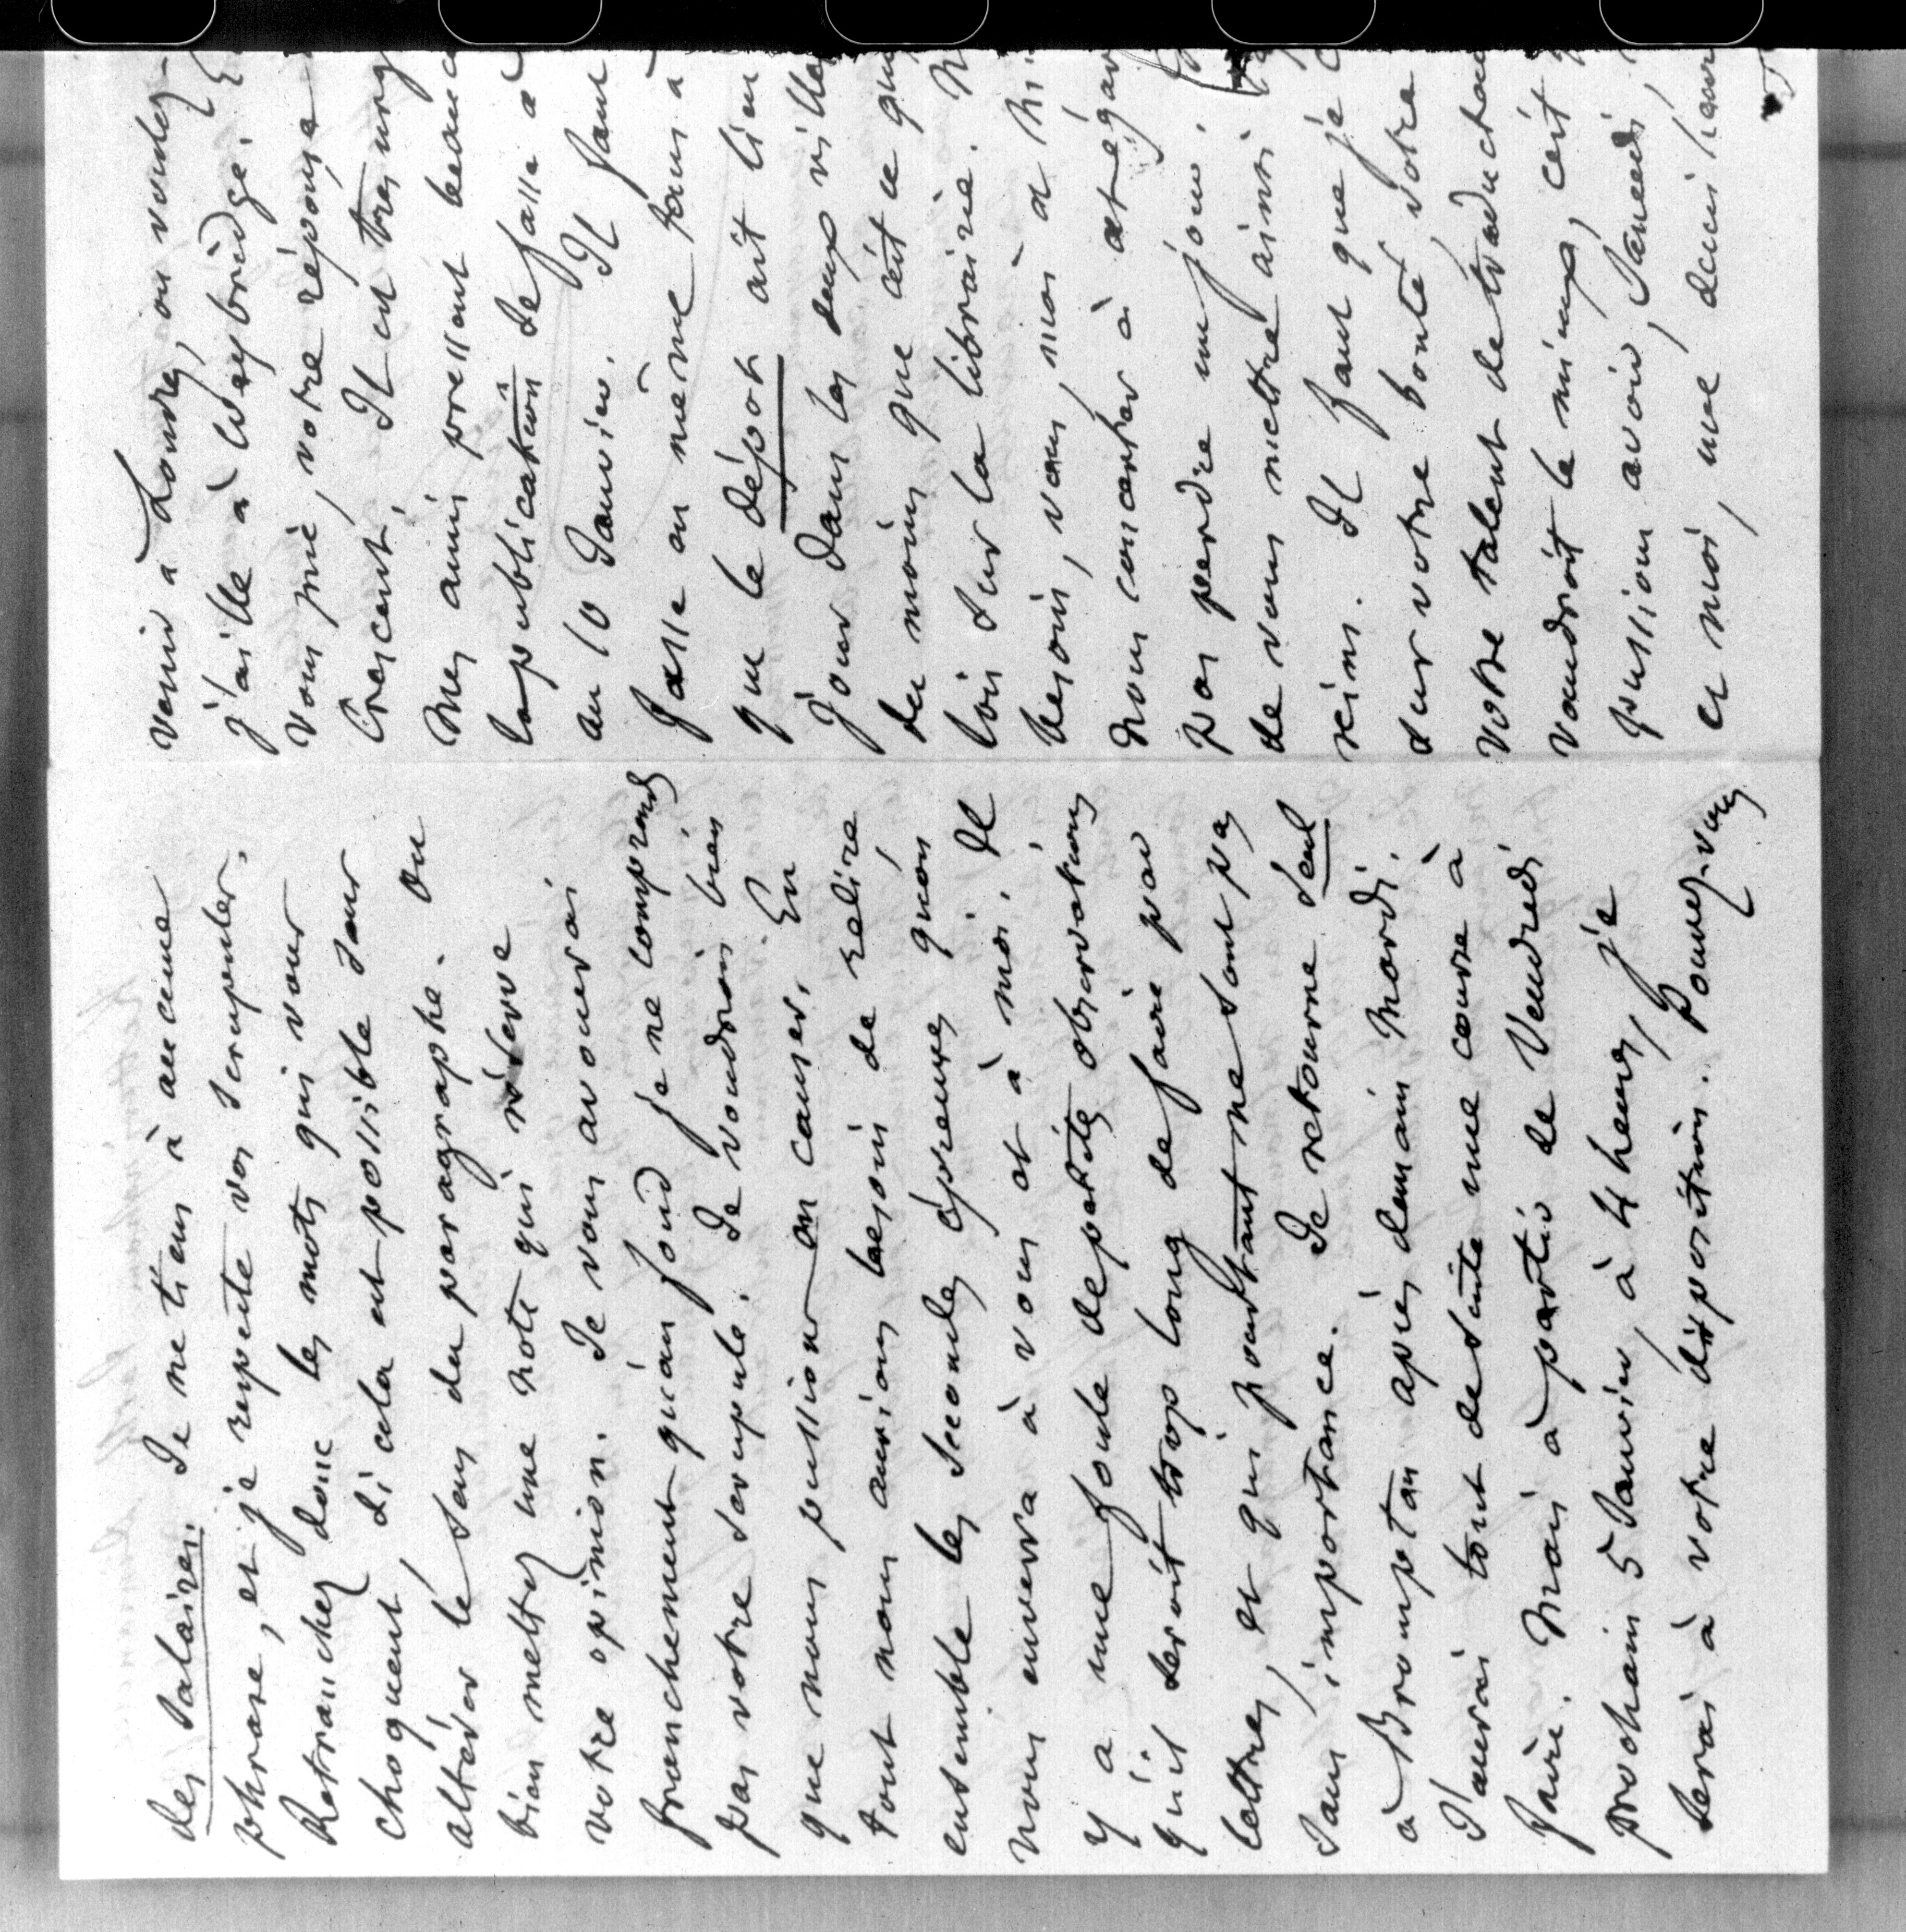 des salaires. Je ne tiens à aucune
phrase, et je respecte vos scrupules.
Retranchez donc les mots qui vous
choquent, si cela est possible sans
altérer le sens du paragraphe. Ou
bien mettez une note qui réserve
votre opinion. Je vous avouerai
franchement qu'au fond je ne comprends
pas votre scrupule. Je voudrais bien
que nous pussions en causer. En
tout nous aurions besoin de relire
ensemble les secondes épreuves qu'on
nous enverra à vous et à moi. Il
y a une foule de petites observations
qu'il serait trop long de faire par
lettres, et qui pourtant ne sont pas
sans importance. Je retourne seul
à Brompton après demain Mardi.
J'aurai tout de suite une course à
faire. Mais à partir de Vendredi
prochain 5 Janvier, à 4 heures, je
serai à votre disposition. Pouvez-vous
venir à Londres, ou voulez-
j'aille à Weybridge.
vous prie, votre réponse
Crescent. Il est très urg
Mes amis pressent beauc
la publication se fasse a
au 10 Janvier. Il faut
fasse en même tems a
que le dépôt ait lieu
jour dans les deux ville
du moins que c'est ce qu
lois sur la librairie. N
besoin, vous, moi et Mr.
nous concerter à cet égar
pas perdre un jour.
de vous mettre ainsi
reins. Il faut que je c
sur votre bonté, votre
votre talent de traducteu
voudroit le mieux, c'est
pussions avoir, Samedi,
et moi, une demi heure